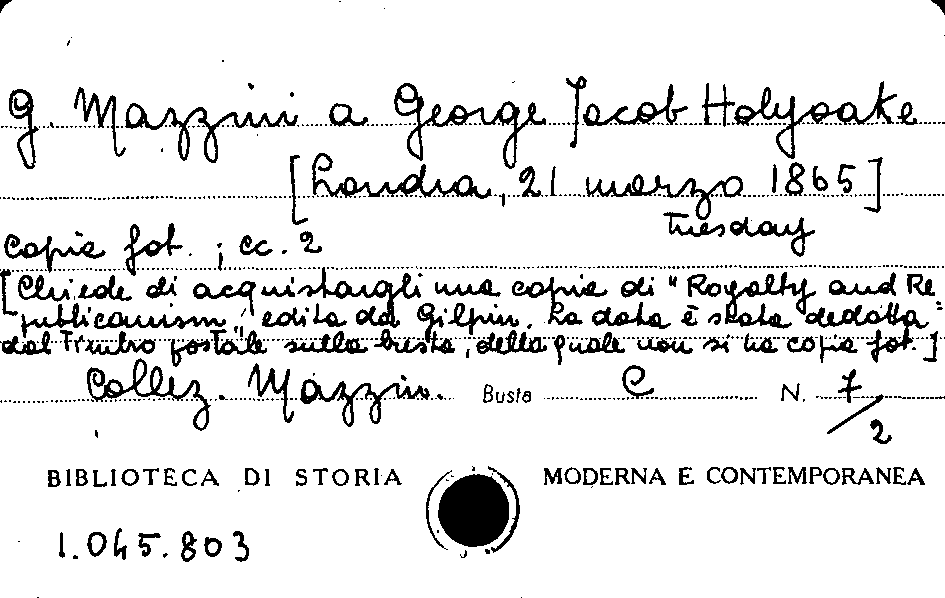 G. Mazzini a George Jacob Holyoake
[Londra, 21 marzo 1865]
Tuesday
copia fot. ; cc. 2
[Chiede di acquistargli una copia di "Royalty and Re-
publicanism", edita da Gilpin. La data è stata dedotta
dal timbro postale sulla busta, della quale non si ha copia fot.]
Collez. Mazzin. Busta C N. 7/2
BIBLIOTECA DI STORIA MODERNA E CONTEMPORANEA
1.045.803